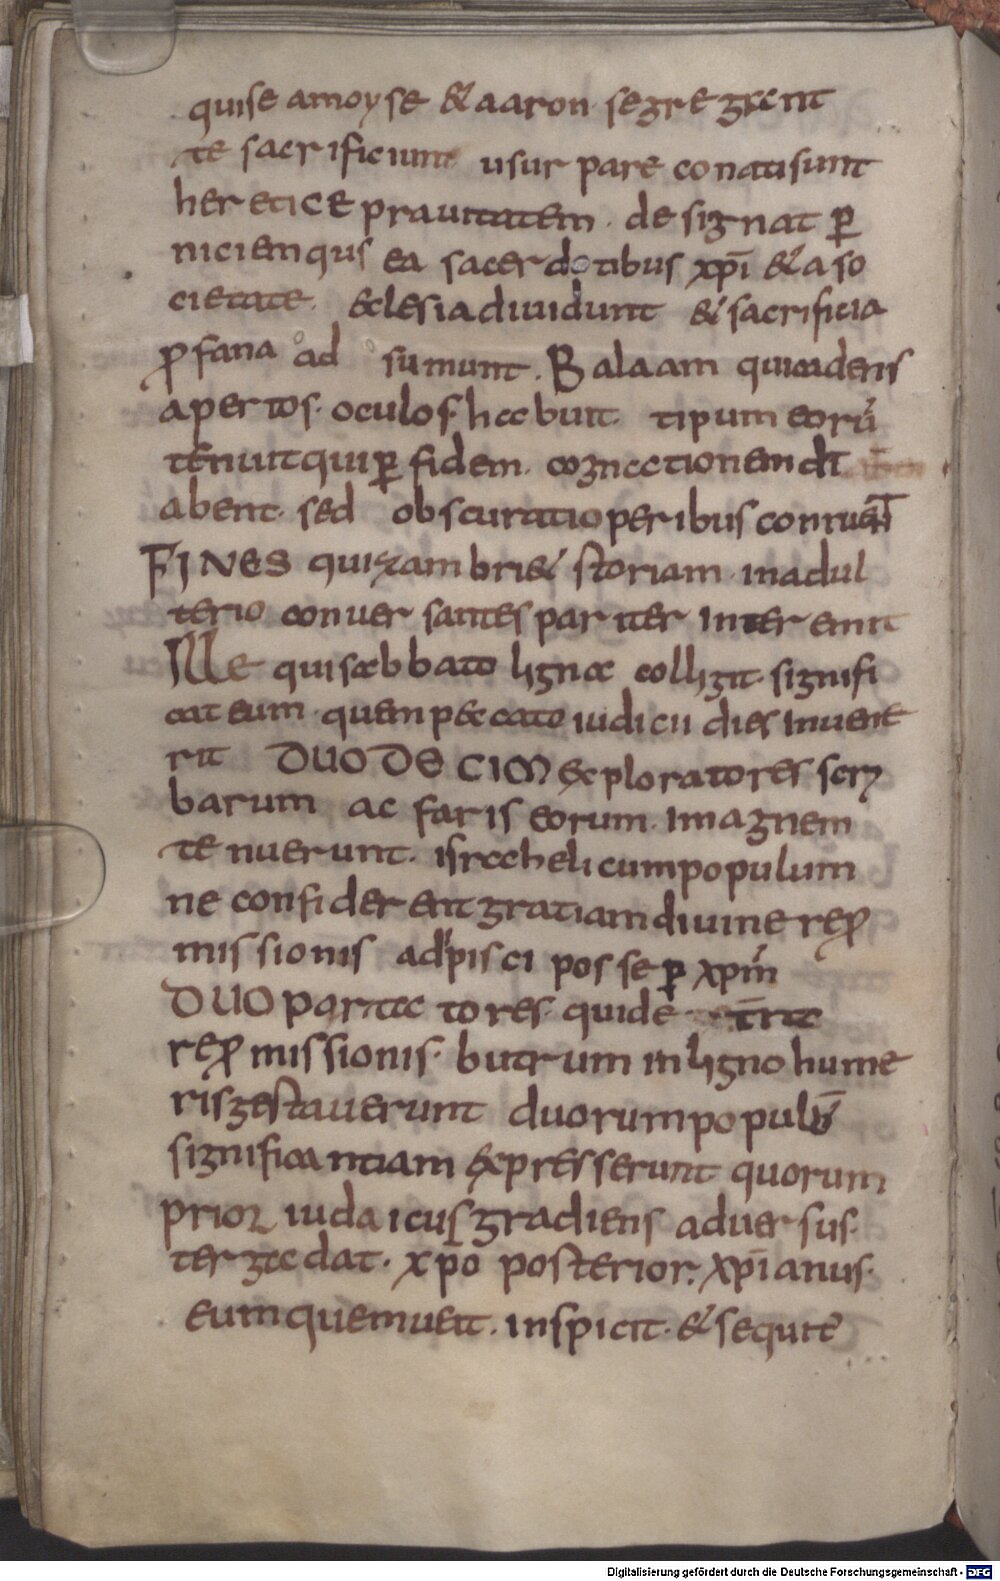 quise amoyse & aaron segregant
te sacrificium usurpare conatisunt
heretice prauitatem · designat p̄
niciemqus ea sacerdotibus xp̄i & aso
cietate · &clesia diuidunt & sacrificia
ꝓfana ad sumunt · Balaam quicadens
apertos · oculos · habuit · tipum eorū
tenuit qui ꝑ fidem · cognactionem dī
abent · sed obscuratioperibus conruen̄t
FINES quizambri & storiam · inadul
terio conuersantes pariter interemit
ILLE quisabbato ligna colligit · signifi
cat eum · quem peccato iudicii dies inuene
rit DUODECIM exploratores scri
barum ac fariseorum · imagnem
tenuerunt · israhelicum populum
ne confiderent gratiam diuine reꝓ
missionis adipisci posse ꝑ xp̄m
DUO portatores · quide t̄rae
reꝓmissionis · butrum in ligno hume
ris gestauerunt duorum populū
significantiam expresserunt quorum
prior iudaicus gradiens aduersus ·
tergadat · xpo posterior · xp̄ianus ·
eumquemueit · inspicit · & sequit̄
Digitalisierung gefördert durch die Deutsche Forschungsgemeinschaft - DFG